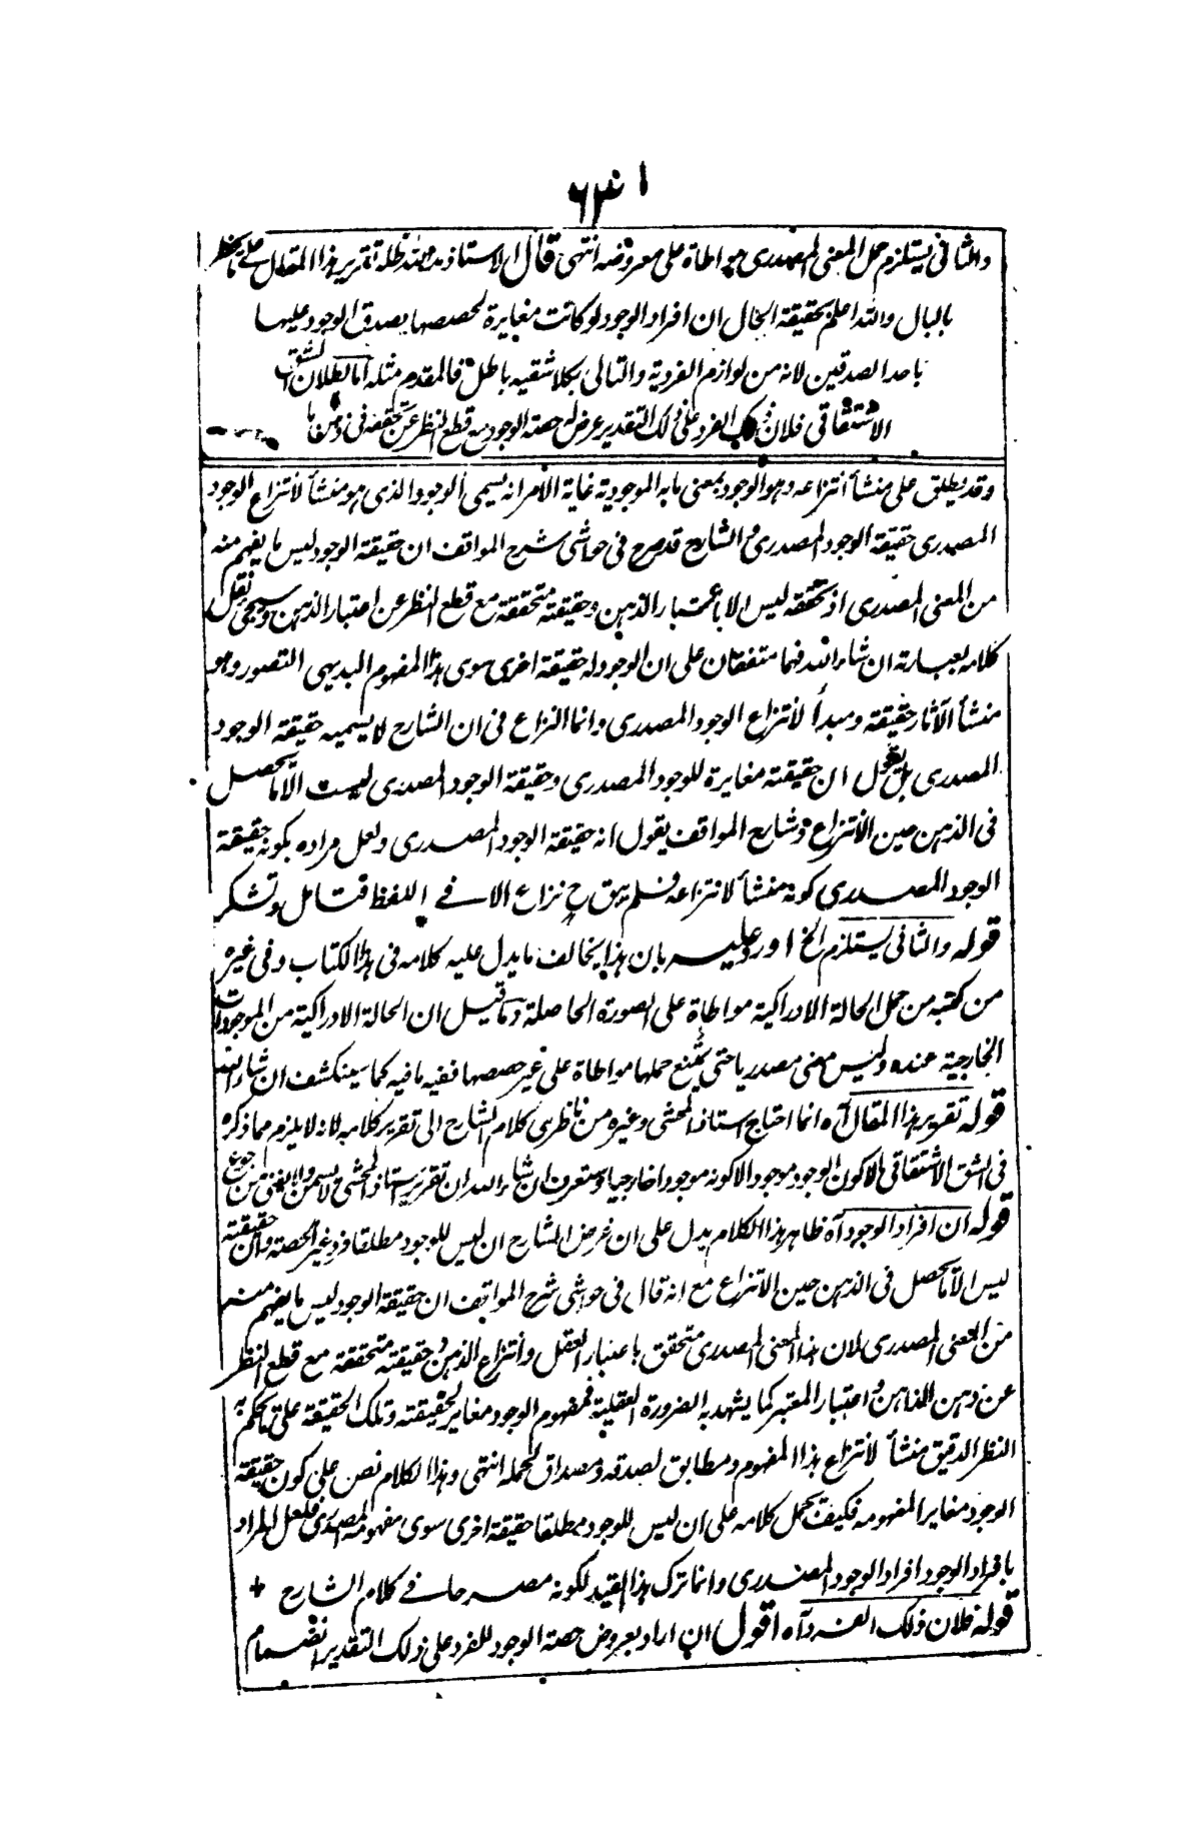 والثانى يستلزم حمل المعنى المصدرى مواطاة على معروضه انتهى قال الاستاذ مد الله ظله تقرير هذا المقال على ما يخطر
بالبال والله اعلم بحقيقة الحال ان افراد الوجود لو كانت مغايرة لحصصها يصدق الوجود عليها
باحد الصدقين لانه من لوازم الفردية والتالى بكلا شقيه باطل فالمقدم مثله اما بطلان الشق
الاشتقاقى فلان ذلك الفرد على ذلك التقدير عرض له حصة الوجود مع قطع النظر عن تحققه فى ذهن ما
وقد يطلق على منشأ انتزاعه وهو الوجود بمعنى ما به الموجودية غاية الامر انه يسمى الوجود الذى هو منشأ لانتزاع الوجود
المصدرى حقيقة الوجود المصدرى والشارح قد صرح فى حواشى شرح المواقف ان حقيقة الوجود ليس ما يفهم منه
من المعنى المصدرى اذ تحققه ليس الا باعتبار الذهن وحقيقته متحققة مع قطع النظر عن اعتبار الذهن وسيجئ نقل
كلامه بعبارته ان شاء الله فهما متفقان على ان الوجود له حقيقة اخرى سوى هذا المفهوم البديهى التصور وهو
منشأ الآثار حقيقة ومبدأ لانتزاع الوجود المصدرى وانما النزاع فى ان الشارح لا يسميه حقيقة الوجود
المصدرى بل يقول ان حقيقته مغايرة للوجود المصدرى وحقيقة الوجود المصدرى ليست الا ما يحصل
فى الذهن حين الانتزاع وشارح المواقف يقول انه حقيقة الوجود المصدرى ولعل مراده بكونه حقيقة
الوجود المصدرى كونه منشأ لانتزاعه فلم يبق ح نزاع الا فى اللفظ فتامل وتشكر
قوله والثانى يستلزم الخ اورد عليه بان هذا يخالف ما يدل عليه كلامه فى هذا الكتاب وفى غيره
من كتبه من حمل الحالة الادراكية مواطاة على الصورة الحاصلة وما قيل ان الحالة الادراكية من الموجودات
الخارجية عنده وليس معنى مصدريا حتى يمتنع حملها مواطاة على غير حصصها ففيه ما فيه كما سينكشف ان شاء الله
قوله تقرير هذا المقال آه انما احتاج استاذ المحشى وغيره من ناظرى كلام الشارح الى تقرير كلامه لانه لا يلزم مما ذكره
فى الشق الاشتقاقى الا كون الوجود موجودا لا كونه موجودا خارجيا وستعرف ان شاء الله ان تقرير استاذ المحشى لا يسمن ولا يغنى من جوع
قوله ان افراد الوجود آه ظاهر هذا الكلام يدل على ان غرض الشارح ان ليس للوجود مطلقا فرد غير الحصة وان حقيقته
ليس الا ما يحصل فى الذهن حين الانتزاع مع انه قال فى حواشى شرح المواقف ان حقيقة الوجود ليس ما يفهم منه
من المعنى المصدرى لان هذا المعنى المصدرى متحقق باعتبار العقل وانتزاع الذهن وحقيقته متحققة مع قطع النظر
عن ذهن الذاهن واعتبار المعتبر كما يشهد به الضرورة العقلية فمفهوم الوجود مغاير لحقيقته وتلك الحقيقة على ما يحكم به
النظر الدقيق منشأ لانتزاع هذا المفهوم ومطابق لصدقه ومصداق لحمله انتهى وهذا الكلام نص على كون حقيقة
الوجود مغايرا لمفهومه فكيف يحمل كلامه على ان ليس للوجود مطلقا حقيقة اخرى سوى مفهومه المصدرى فلعل المراد
بافراد الوجود افراد الوجود المصدرى وانما ترك هذا القيد لكونه مصرحا فى كلام الشارح +
قوله فلان ذلك الفرد آه اقول ان اراد بعروض حصة الوجود للفرد على ذلك التقدير انضمام